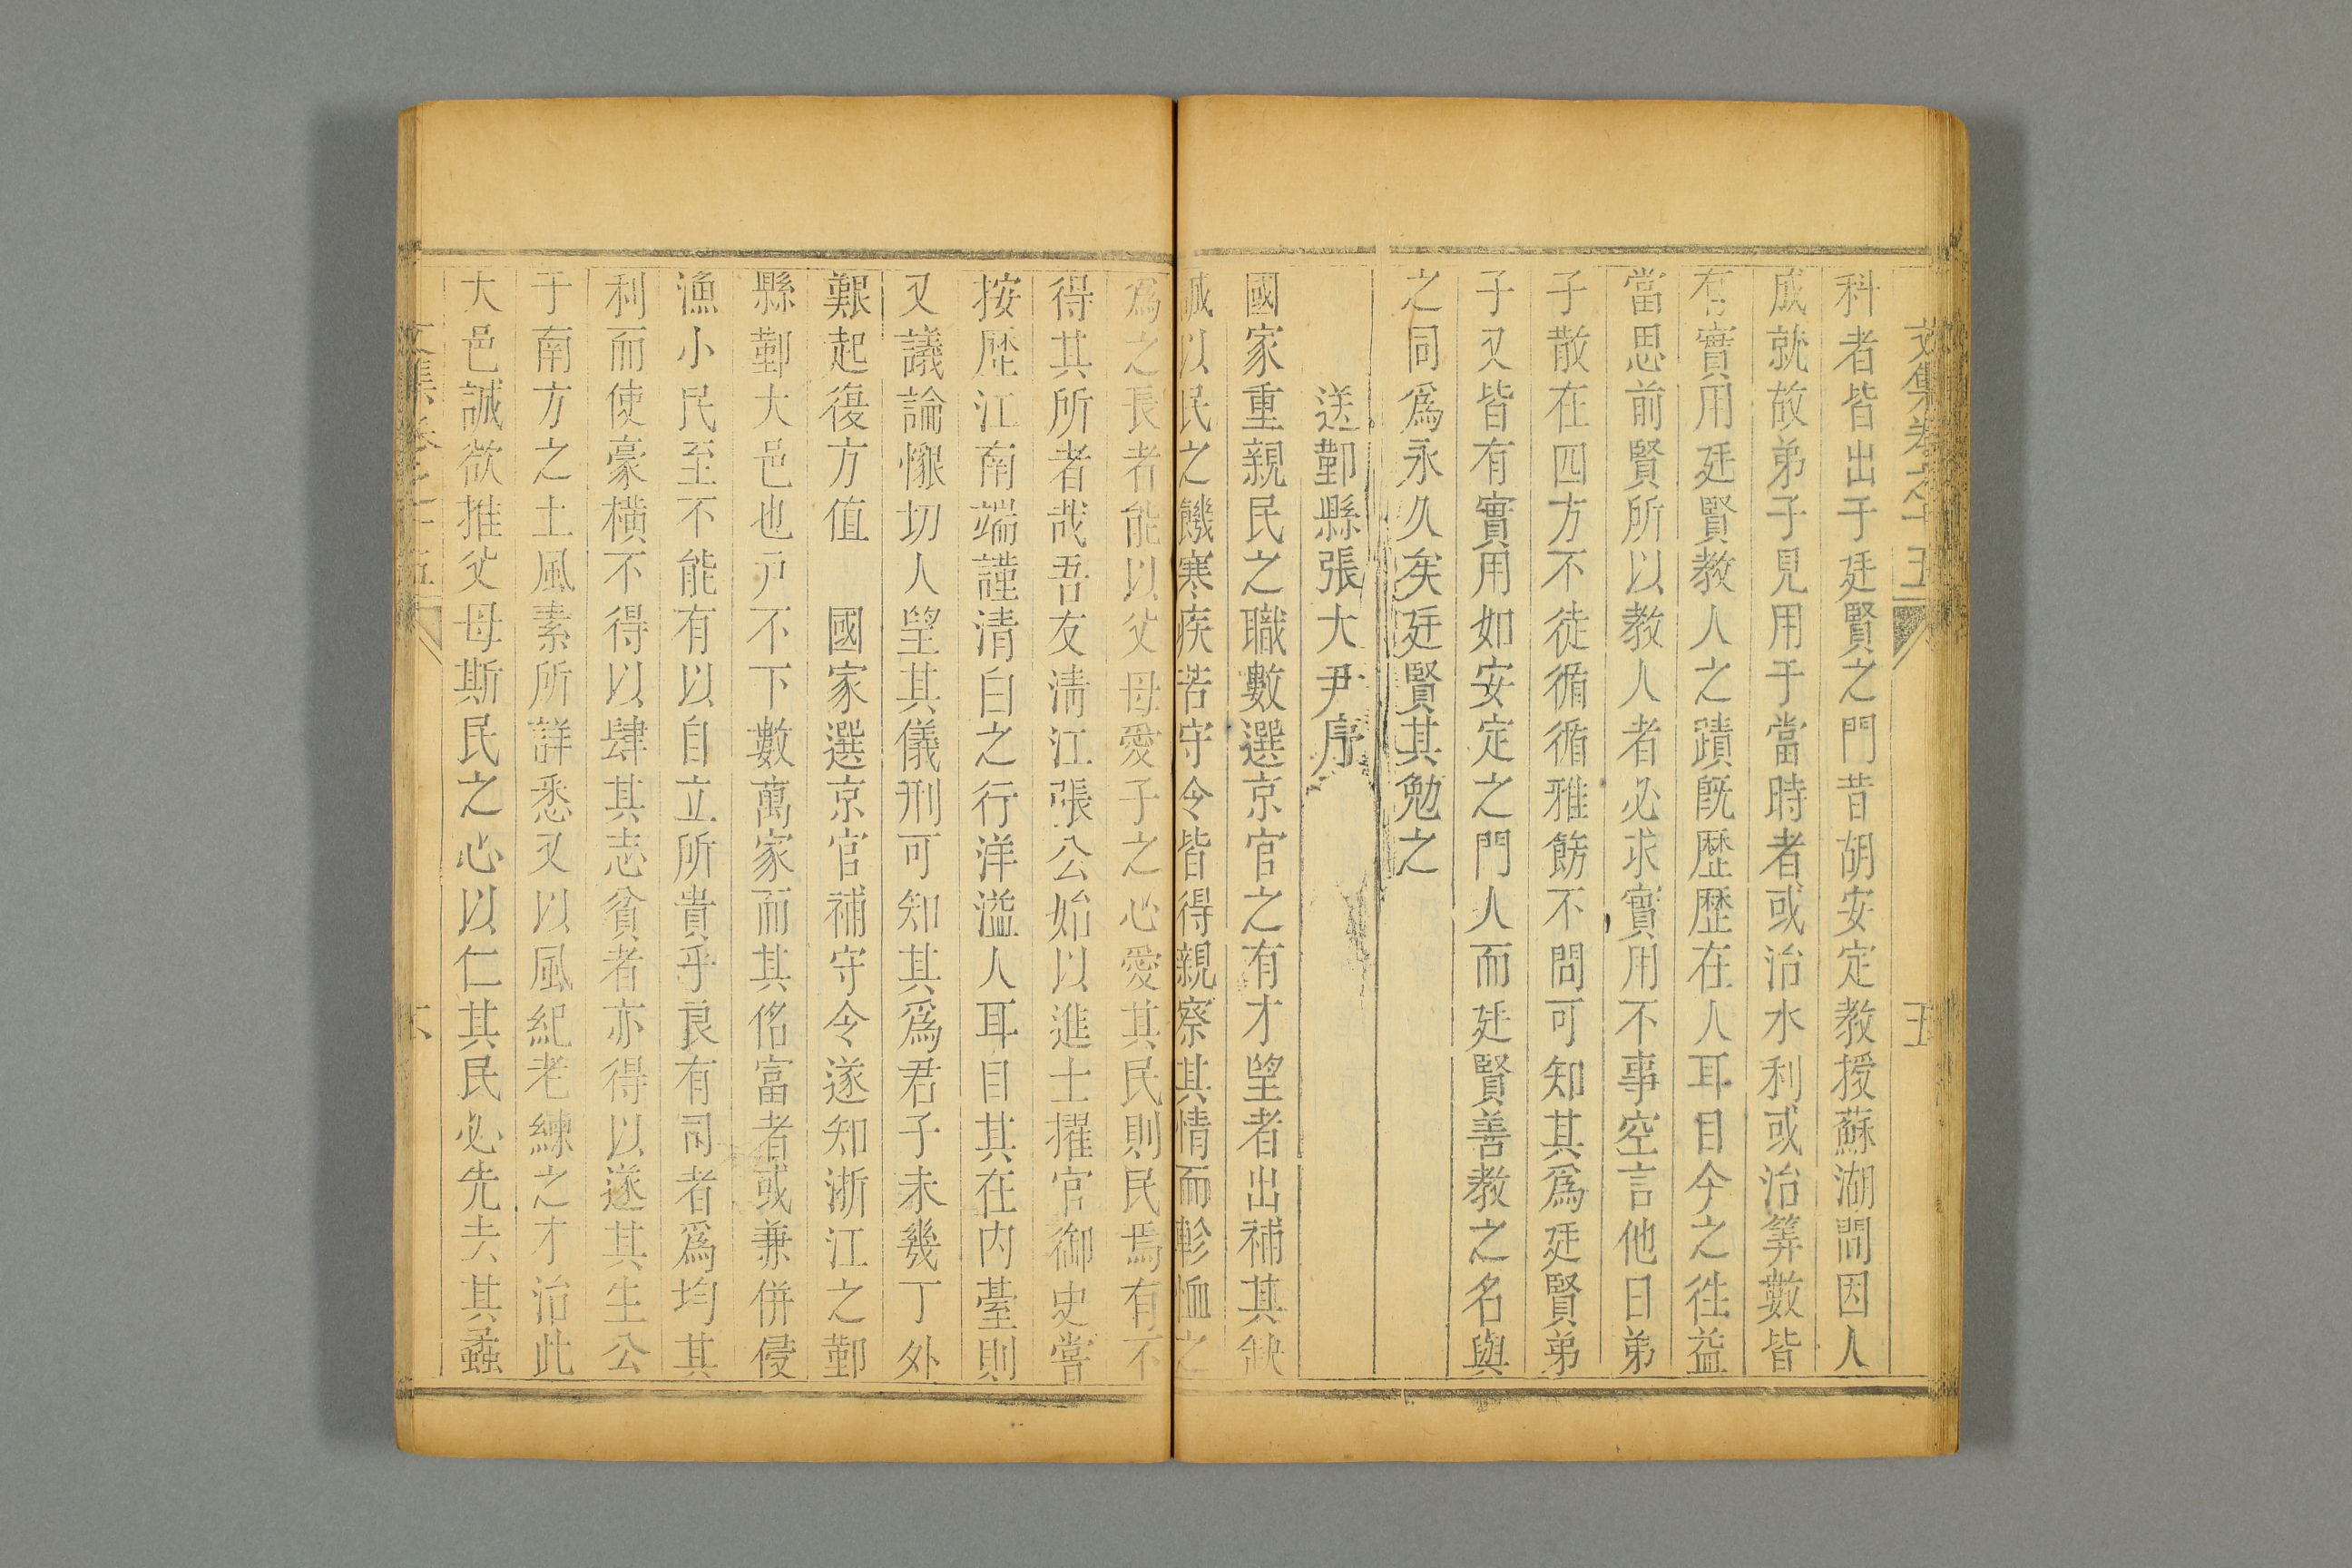 文集卷之十五
五
科者皆出于廷賢之門昔胡安定教授蘇湖間因人
成就故弟子見用于當時者或治水利或治筭數皆
有實用廷賢教人之蹟旣歴歴在人耳目今之徃益
當思前賢所以教人者必求實用不事空言他日弟
子散在四方不徒循循雅飭不問可知其爲廷賢弟
子又皆有實用如安定之門人而廷賢善教之名與
之同爲永久矣廷賢其勉之
送鄞縣張大尹序
國家重親民之職數選京官之有才望者出補其缺
誠以民之饑寒疾苦守令皆得親察其情而軫恤之
爲之長者能以父母愛子之心愛其民則民焉有不
得其所者哉吾友淸江張公始以進士擢官御史嘗
按歴江南端謹清白之行洋溢人耳目其在内臺則
又議論懇切人望其儀刑可知其爲君子未幾丁外
艱起復方值 國家選京官補守令遂知浙江之鄞
縣鄞大邑也戸不下數萬家而其俗富者或兼併侵
漁小民至不能有以自立所貴乎良有司者爲均其
利而使豪橫不得以肆其志貧者亦得以遂其生公
于南方之土風素所詳悉又以風紀老練之才治此
大邑誠欲推父母斯民之心以仁其民必先去其蠧
文集卷之十五